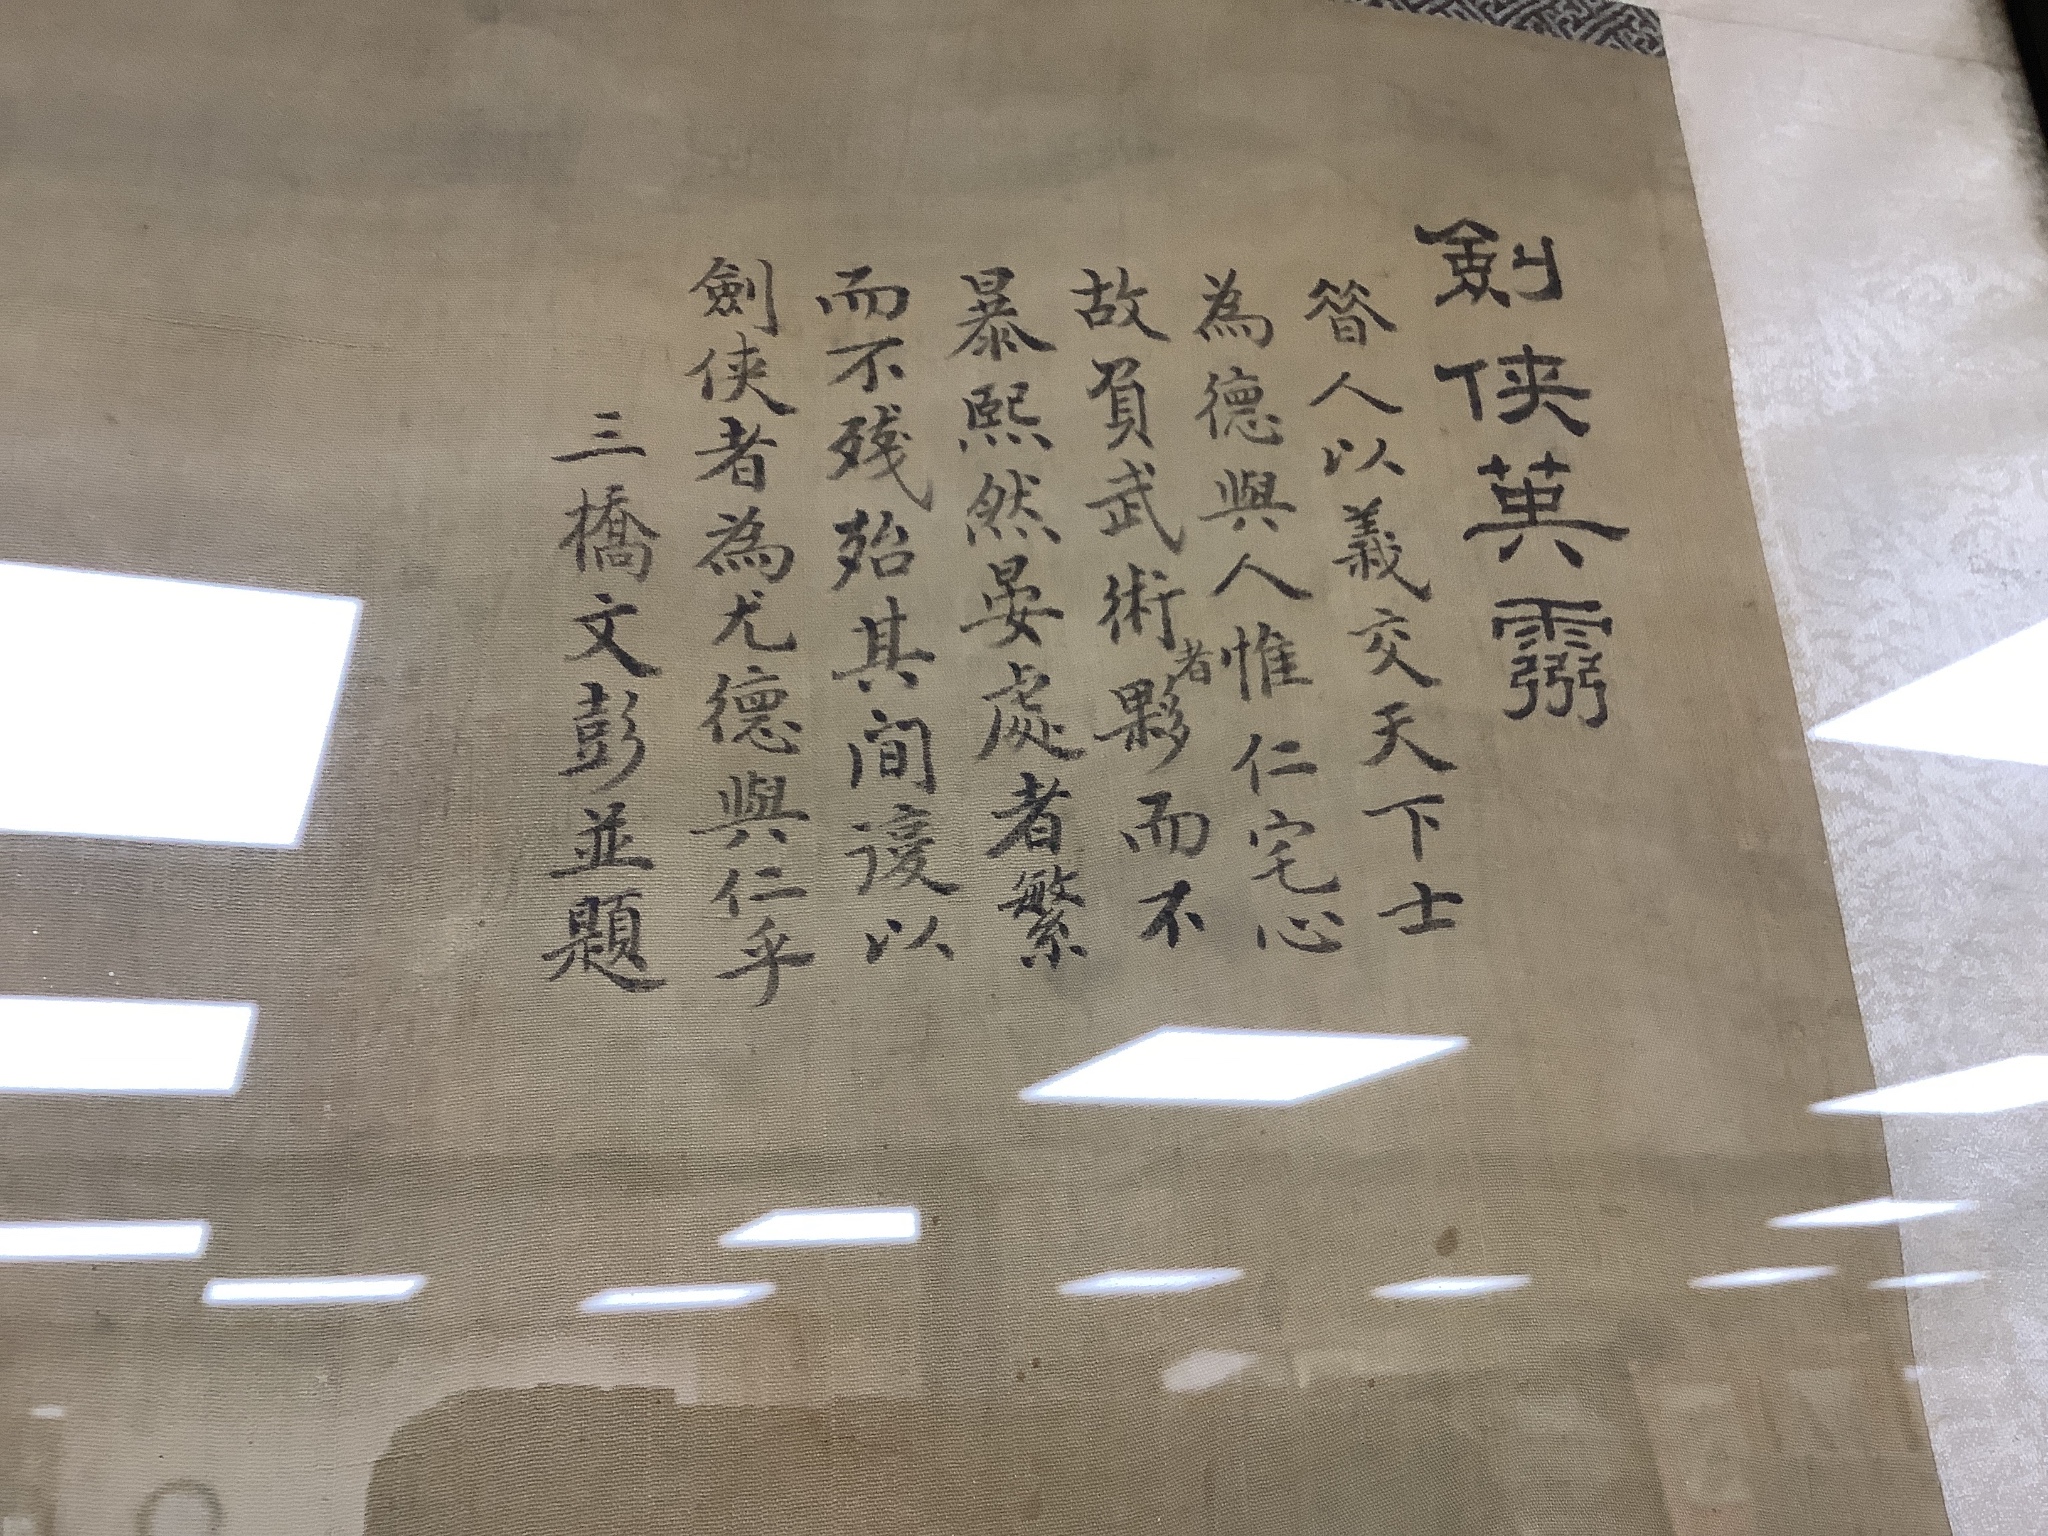 劍俠英靈
昝人以義交天下士
為德與人惟仁宅心
故負武術者夥而不
暴熙然晏處者繁
而不殘殆其間以
劍俠者為尤德與仁乎
三橋文彭並題